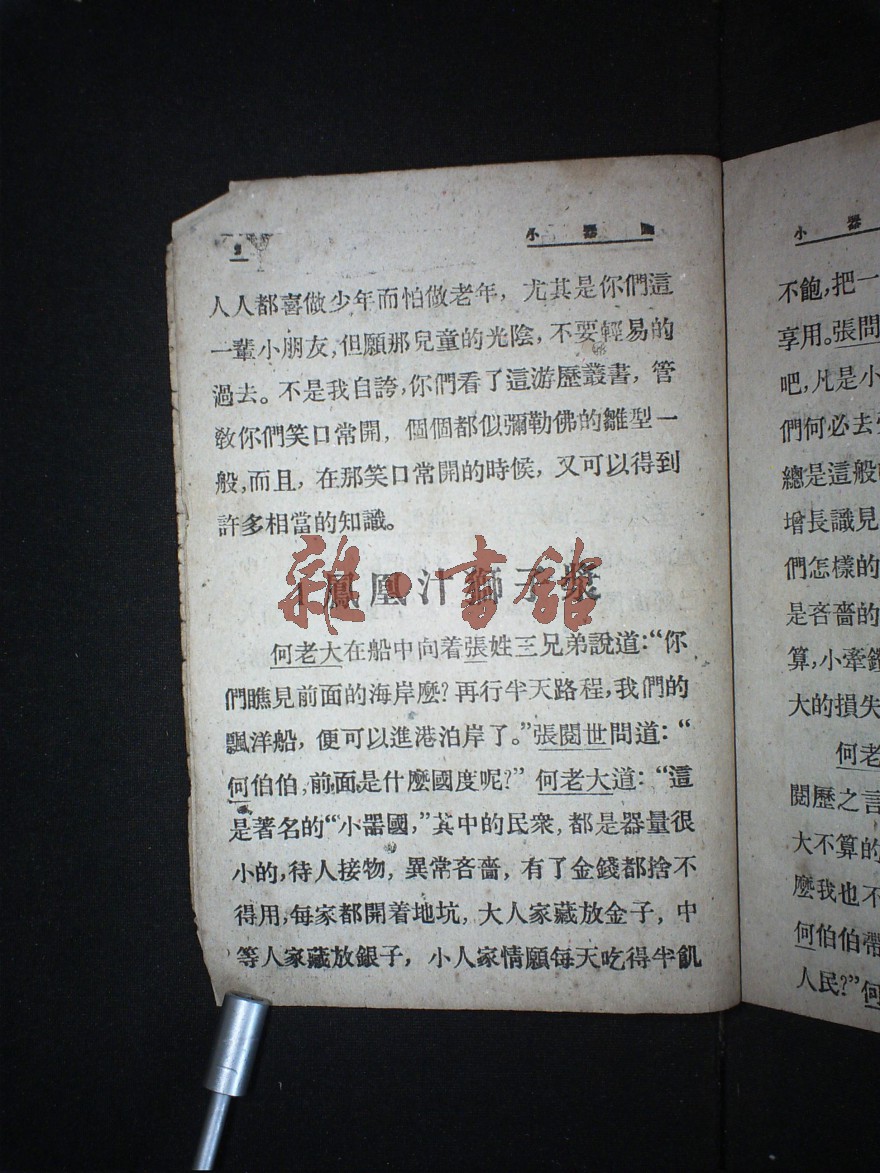 2
小器國
人人都喜做少年而怕做老年，尤其是你們這
一輩小朋友，但願那兒童的光陰，不要輕易的
過去。不是我自誇，你們看了這游歷叢書，管
敎你們笑口常開，個個都似彌勒佛的雛型一
般，而且，在那笑口常開的時候，又可以得到
許多相當的知識。
鳳凰汁獅子漿
雜·書館
何老大在船中向着張姓三兄弟說道：“你
們瞧見前面的海岸麼？再行半天路程，我們的
飄洋船，便可以進港泊岸了。”張閱世問道：“
何伯伯，前面是什麼國度呢？”何老大道：“這
是著名的“小器國，”其中的民衆，都是器量很
小的，待人接物，異常吝嗇，有了金錢都捨不
得用，每家都開着地坑，大人家藏放金子，中
等人家藏放銀子，小人家情願每天吃得半飢
小器
不飽，把一
享用。張問
吧，凡是小
們何必去
總是這般
增長識見
們怎樣的
是吝嗇的
算，小牽
大的損失
何老
閱歷之言
大不算的
麼我也不
何伯伯帶
人民？”何